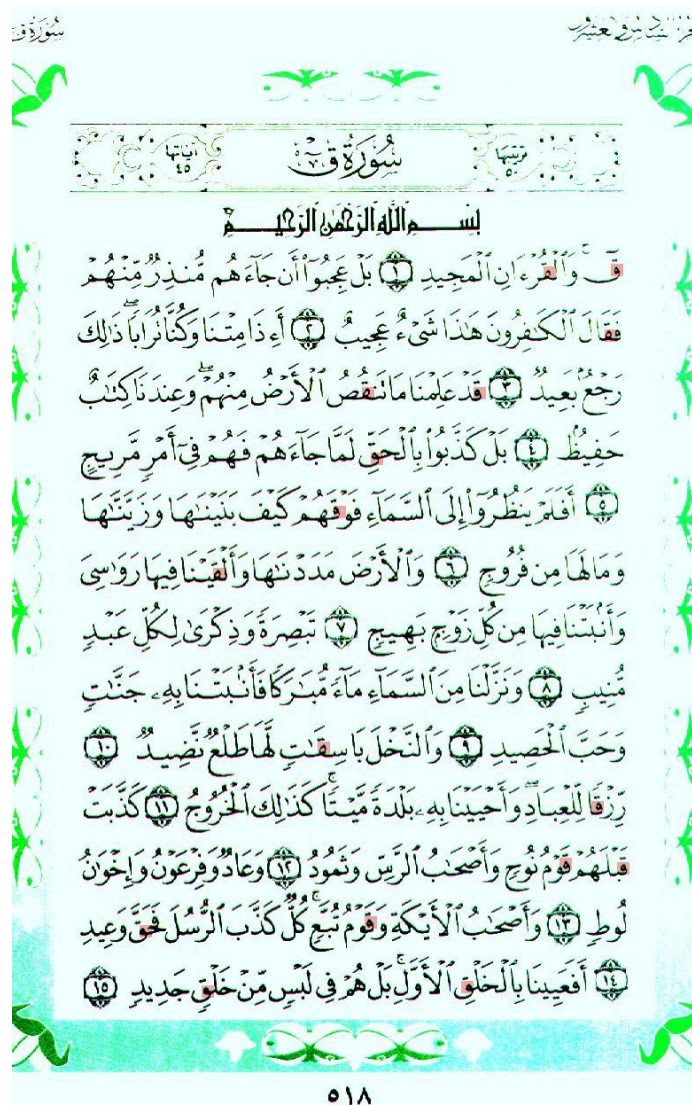 سُورَةُ ق
سُورَةُ ق
ترتيبها
٥٠
آياتها
٤٥
بِسْمِ اللَّهِ الرَّحْمَٰنِ الرَّحِيمِ
قٓ وَٱلْقُرْءَانِ ٱلْمَجِيدِ ١ بَلْ عَجِبُوٓا۟ أَن جَآءَهُم مُّنذِرٌ مِّنْهُمْ
فَقَالَ ٱلْكَٰفِرُونَ هَٰذَا شَىْءٌ عَجِيبٌ ٢ أَءِذَا مِتْنَا وَكُنَّا تُرَابًا ۖ ذَٰلِكَ
رَجْعٌۢ بَعِيدٌ ٣ قَدْ عَلِمْنَا مَا تَنقُصُ ٱلْأَرْضُ مِنْهُمْ ۖ وَعِندَنَا كِتَٰبٌ
حَفِيظٌۢ ٤ بَلْ كَذَّبُوا۟ بِٱلْحَقِّ لَمَّا جَآءَهُمْ فَهُمْ فِىٓ أَمْرٍ مَّرِيجٍ
٥ أَفَلَمْ يَنظُرُوٓا۟ إِلَى ٱلسَّمَآءِ فَوْقَهُمْ كَيْفَ بَنَيْنَٰهَا وَزَيَّنَّٰهَا
وَمَا لَهَا مِن فُرُوجٍ ٦ وَٱلْأَرْضَ مَدَدْنَٰهَا وَأَلْقَيْنَا فِيهَا رَوَٰسِىَ
وَأَنۢبَتْنَا فِيهَا مِن كُلِّ زَوْجٍۭ بَهِيجٍ ٧ تَبْصِرَةً وَذِكْرَىٰ لِكُلِّ عَبْدٍ
مُّنِيبٍ ٨ وَنَزَّلْنَا مِنَ ٱلسَّمَآءِ مَآءً مُّبَٰرَكًا فَأَنۢبَتْنَا بِهِۦ جَنَّٰتٍ
وَحَبَّ ٱلْحَصِيدِ ٩ وَٱلنَّخْلَ بَاسِقَٰتٍ لَّهَا طَلْعٌ نَّضِيدٌ ١٠
رِّزْقًا لِّلْعِبَادِ ۖ وَأَحْيَيْنَا بِهِۦ بَلْدَةً مَّيْتًا ۚ كَذَٰلِكَ ٱلْخُرُوجُ ١١ كَذَّبَتْ
قَبْلَهُمْ قَوْمُ نُوحٍ وَأَصْحَٰبُ ٱلرَّسِّ وَثَمُودُ ١٢ وَعَادٌ وَفِرْعَوْنُ وَإِخْوَٰنُ
لُوطٍ ١٣ وَأَصْحَٰبُ ٱلْأَيْكَةِ وَقَوْمُ تُبَّعٍ ۚ كُلٌّ كَذَّبَ ٱلرُّسُلَ فَحَقَّ وَعِيدِ
١٤ أَفَعَيِينَا بِٱلْخَلْقِ ٱلْأَوَّلِ ۚ بَلْ هُمْ فِى لَبْسٍ مِّنْ خَلْقٍ جَدِيدٍ ١٥
٥١٨